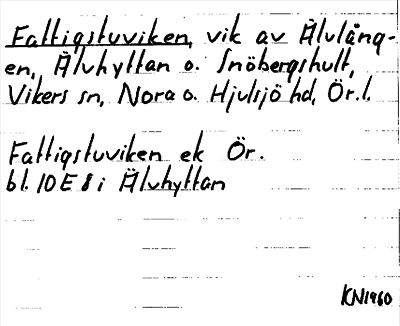 Fattigstuviken, vik av Älvlång-
en, Älvhyttan o. Snöbergshult,
Vikers sn, Nora o. Hjulsjö hd, Ör. l.
Fattigstuviken ek Ör.
bl. 10E 8 i Älvhyttan
KN1960